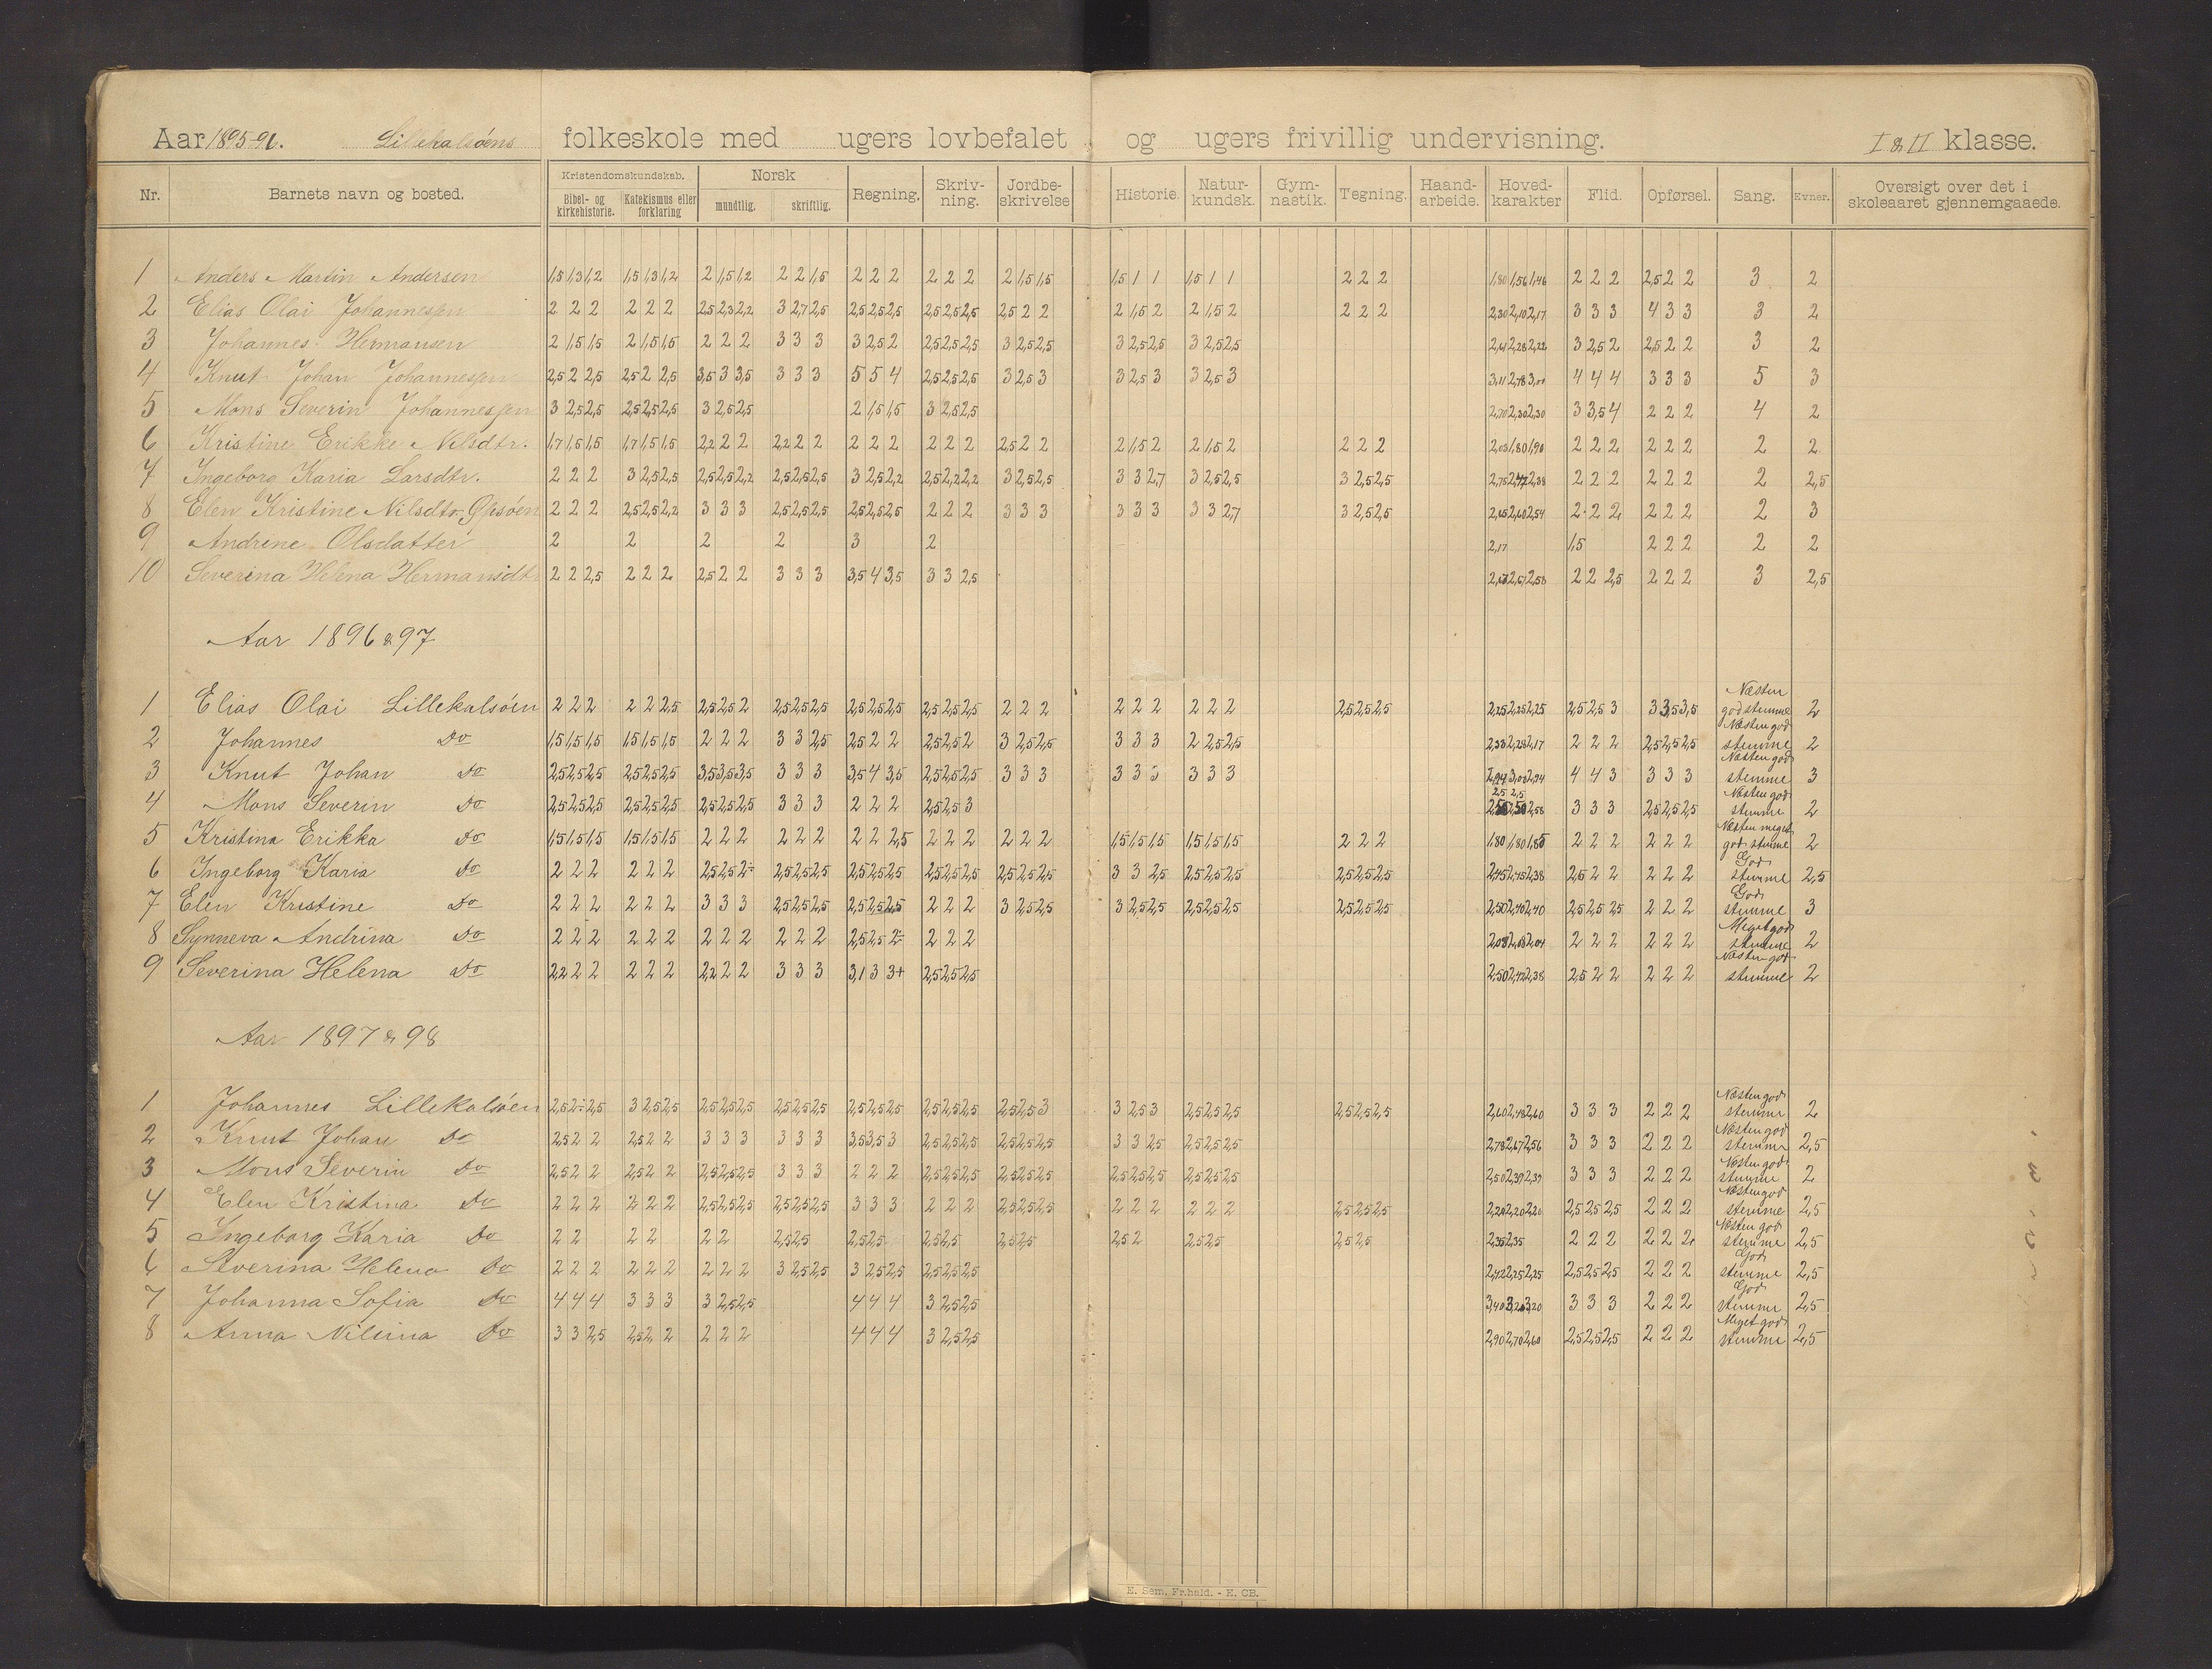 Aar 1895-96. Lillekalsöens folkeskole med ugers lovbefalet og ugers frivillig undervisning. I & II klasse.
Nr. Barnets navn og bosted. Kristendomskundskab. Bibel- og kirkehistorie. Katekismus eller forklaring Norsk mundtlig. skriftlig. Regning. Skriv-ning. Jordbe-skrivelse Historie. Natur-kundsk. Gym-nastik. Tegning. Haand-arbeide. Hoved-karakter Flid. Opførsel. Sang. Evner. Oversigt over det i skoleaaret gjennemgaaede.
1 Anders Martin Andersen 1,5 1,3 1,2 1,5 1,3 1,2 2 1,5 1,2 2 2 1,5 2 2 2 2 2 2 2 1,5 1,5 1,5 1 1 1,5 1 1 2 2 2 1,80 1,56 1,46 2 2 2 2,5 2 2 3 2
2 Elias Olai Johannesen 2 2 2 2 2 2 2,5 2,3 2,2 3 2,7 2,5 2,5 2,5 2,5 2,5 2,5 2,5 2,5 2 2 2 1,5 2 2 1,5 2 2 2 2 2,30 2,10 2,17 3 3 3 4 3 3 3 2
3 Johannes Hermansen 2 1,5 1,5 2 1,5 1,5 2 2 2 3 3 3 3 2,5 2 2,5 2,5 2,5 3 2,5 2,5 3 2,5 2,5 3 2,5 2,5 2,61 2,28 2,22 3 2,5 2 2,5 2 2 3 2
4 Knut Johan Johannesen 2,5 2 2,5 2,5 2 2,5 3,5 3 3,5 3 3 3 5 5 4 2,5 2,5 2,5 3 2,5 3 3 2,5 3 3 2,5 3 3,11 2,78 3,00 4 4 4 3 3 3 5 3
5 Mons Severin Johannesen 3 2,5 2,5 2,5 2,5 2,5 3 2,5 2,5 2 1,5 1,5 3 2,5 2,5 2,70 2,30 2,30 3 3,5 4 2 2 2 4 2
6 Kristine Erikke Nilsdtr. 1,7 1,5 1,5 1,7 1,5 1,5 2,2 2 2 2,2 2 2 2 2 2 2 2 2 2,5 2 2 2 1,5 2 2 1,5 2 2 2 2 2,03 1,80 1,90 2 2 2 2 2 2 2 2
7 Ingeborg Karia Larsdtr. 2 2 2 3 2,5 2,5 2,5 2,5 2,2 2,5 2,5 2,5 3 2,5 2,2 2,5 2,2 2,2 3 2,5 2,5 3 3 2,7 3 2,5 2,5 3 2,5 2,5 2,75 2,42 2,38 2 2 2 2 2 2 2 2,5
8 Elen Kristine Nilsdtr. 2 2 2 2,5 2,5 2,2 3 3 3 2,5 2,5 2,5 2,5 2,5 2,5 2 2 2 3 3 3 3 3 3 3 3 2,7 3 2,5 2,5 2,65 2,60 2,54 2 2 2 2 2 2 2 3
9 Andrine Olsdatter 2 2 2 2 3 2 2,17 1,5 2 2 2 2 2
10 Severina Helena Hermansdtr 2 2 2,5 2 2 2 2,5 2 2 3 3 3 3,5 4 3,5 3 3 2,5 2,67 2,67 2,58 2 2 2,5 2 2 2 3 2,5
Aar 1896 & 97
1 Elias Olai Lillekalsöen 2 2 2 2 2 2,5 2,5 2,5 2 2,5 2,5 2,5 2,5 2,5 2,5 2,5 2,5 2,5 2 2 2 2 2 2 2 2 2 2,5 2,5 2,5 2,25 2,25 2,25 2,5 2,5 3 3 3,5 3,5 Næsten god stemme 2
2 Johannes Do 1,5 1,5 1,5 1,5 1,5 1,5 2 2 2 3 3 2,5 2,5 2 2 2,5 2,5 2 3 2,5 2,5 3 3 3 2 2,5 2,5 2,33 2,28 2,17 2 2 2 2,5 2,5 2,5 Næsten god stemme 2
3 Knut Johan Do 2,5 2,5 2,5 2,5 2,5 2,5 3,5 3,5 3,5 3 3 3 3,5 4 3,5 2,5 2,5 2,5 3 3 3 3 3 3 3 3 3 2,94 3,00 2,94 4 4 3 3 3 3 Næsten god stemme 3
4 Mons Severin Do 2,5 2,5 2,5 2,5 2,5 2,5 2,5 2,5 2,5 3 3 3 2 2 2 2,5 2,5 3 2,5 2,5 2,58 3 3 3 2,5 2,5 2,5 Næsten god stemme 2
5 Kristina Erikka Do 1,5 1,5 1,5 1,5 1,5 1,5 2 2 2 2 2 2 2 2 2,5 2 2 2 2 2 2 1,5 1,5 1,5 1,5 1,5 1,5 2 2 2 1,80 1,80 1,85 2 2 2 2 2 2 Næsten meget god stemme 2
6 Ingeborg Karia Do 2 2 2 2 2 2 2,5 2,5 2÷ 2,5 2,5 2,5 2,5 2,5 2,5 2,5 2,5 2,5 2,5 2,5 2,5 3 3 2,5 2,5 2,5 2,5 2,5 2,5 2,5 2,45 2,45 2,38 2,5 2 2 2 2 2 God stemme 2,5
7 Elen Kristine Do 2 2 2 2 2 2 3 3 3 2,5 2,5 2,5 2,5 2,5 2,5 2 2 2 3 2,5 2,5 3 2,5 2,5 2,5 2,5 2,5 2,5 2,5 2,5 2,50 2,40 2,40 2,5 2,5 2,5 2 2 2 God stemme 3
8 Synneva Andrina Do 2 2 2 2 2 2 2 2 2 2 2 2 2,5 2,5 2÷ 2 2 2 2,08 2,08 2,04 2 2 2 2 2 2 Meget god stemme 2
9 Severina Helena Do 2,2 2 2 2 2 2 2,2 2 2 3 3 3 3,1 3 3+ 2,5 2,5 2,5 2,50 2,42 2,38 2,5 2 2 2 2 2 Næsten god stemme 2
Aar 1897 & 98
1 Johannes Lillekalsöen 2,5 2÷ 2,5 3 2,5 2,5 2,5 2,5 2,5 2,5 2,5 2,5 2,5 2,5 2,5 2,5 2,5 2,5 2,5 2,5 3 3 2,5 3 2,5 2,5 2,5 2,5 2,5 2,5 2,60 2,48 2,60 3 3 3 2 2 2 Næsten god stemme 2
2 Knut Johan Do 2,5 2 2 2,5 2 2 3 3 3 3 3 3 3,5 3,5 3 2,5 2,5 2,5 2,5 2,5 2,5 3 3 2,5 2,5 2,5 2,5 2,78 2,67 2,56 3 3 3 2 2 2 Næsten god stemme 2,5
3 Mons Severin Do 2,5 2 2 2,5 2 2 2,5 2,5 2,5 3 3 3 2 2 2 2,5 2,5 2,5 2,5 2,5 2,5 2,5 2,5 2,5 2,5 2,5 2,5 2,50 2,39 2,39 3 3 3 2 2 2 Næsten god stemme 2
4 Elen Kristina Do 2 2 2 2 2 2 2,5 2,5 2,5 2,5 2,5 2,5 3 3 3 2 2 2 2,5 2,5 2,5 2 2 2 2 2 2 2,5 2,5 2,5 2,20 2,20 2,20 2,5 2,5 2,5 2 2 2 Næsten god stemme 2,5
5 Ingeborg Karia Do 2 2 2 2 2 2 2,5 2,5 2,5 2,5 2,5 2,5 2,5 2,5 2,5 2 2,5 2,5 2,5 2,5 2,35 2,35 2 2 2 2 2 2 Næsten god stemme 2,5
6 Severina Helena Do 2 2 2 2 2 2 2 2 2 3 2,5 2,5 3 2,5 2,5 2,5 2,5 2,5 2,42 2,25 2,25 2,5 2,5 2,5 2 2 2 God stemme 2,5
7 Johanna Sofia Do 4 4 4 3 3 3 3 2,5 2,5 4 4 4 3 2,5 2,5 3,40 3,20 3,20 3 3 3 2 2 2 God stemme 2,5
8 Anna Nilsina Do 3 3 2,5 2,5 2 2 2 2 2 4 4 4 3 2,5 2,5 2,90 2,70 2,60 2,5 2,5 2,5 2 2 2 Meget god stemme 2,5
E. Sem, Fr.hald. - E. CB.